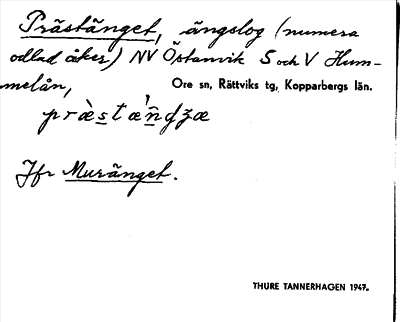 Prästänget, ängslog (numera
odlad åker) NV Östanvik S och V Hum-
melån, Ore sn, Rättviks tg, Kopparbergs län.
Jfr Muränget.
THURE TANNERHAGEN 1947.